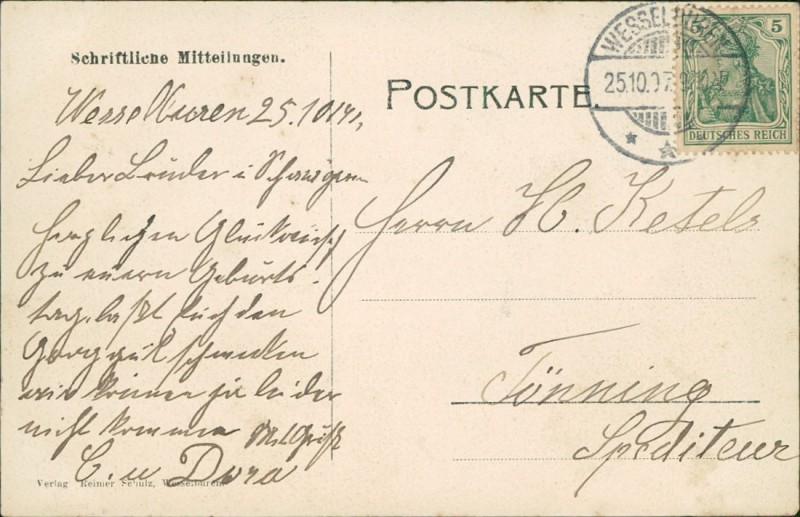 Schriftliche Mitteilungen.
POSTKARTE.
WESSELBUREN
25.10.07
5
DEUTSCHES REICH
Wesselburen 25.10.
Lieber Bruder u Schwägerin
Herzlichen Glückwunsch
zu euern Geburts-
tag, laßt Euch den
gut schmecken
wir können ja leider
nicht kommen Gruß
C. u Dora
Verlag Reimer Schulz, Wesselburen.
Herrn H. Ketels
Tönning
Spediteur